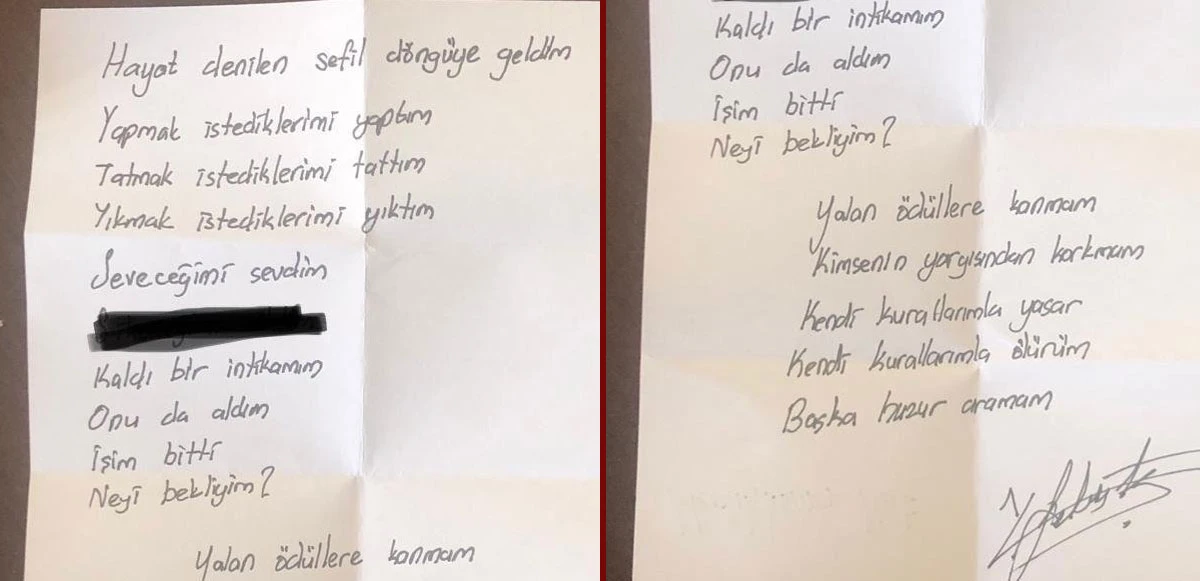 Hayat denilen sefil döngüye geldim
Yapmak istediklerimi yaptım
Tatmak istediklerimi tattım
Yıkmak istediklerimi yıktım
Seveceğimi sevdim
Kaldı bir intikamım
Onu da aldım
İşim bitti
Neyi bekliyim?
Yalan ödüllere kanmam
Kaldı bir intikamım
Onu da aldım
İşim bitti
Neyi bekliyim?
Yalan ödüllere kanmam
Kimsenin yargısından korkmam
Kendi kurallarımla yaşar
Kendi kurallarımla ölürüm
Başka huzur aramam